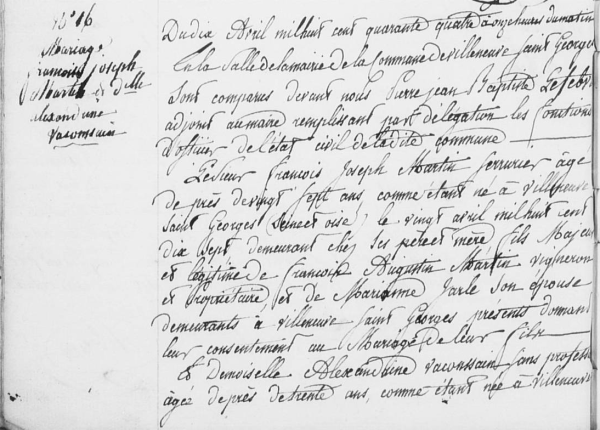 N° 16
Mariage
françois Joseph
Martin et d.lle
alexandrine
vaconssain
Du dix Avril mil huit cent quarante quatre à onze heures du matin
En la Salle de la mairie de la Commune de villeneuve Saint Georges
Sont comparus devant nous Pierre jean Baptiste Lefebvre
adjoint au maire remplissant par délégation les fonctions
d'officier de l'état civil de ladite commune
Le Sieur françois Joseph Martin Serrurier âgé
de près de vingt Sept ans comme étant né à villeneuve
Saint Georges (Seine et oise) le vingt avril mil huit cent
dix Sept demeurant chez Ses père et mère fils Majeur
et légitime de françois Augustin Martin vigneron
et propriétaire, et de Marianne Jarle Son épouse
demeurants à villeneuve Saint Georges présents donnant
leur consentement au Mariage de leur fils
Et Demoiselle Alexandrine vaconssain Sans profession
âgée de près de trente ans, comme étant née à villeneuve